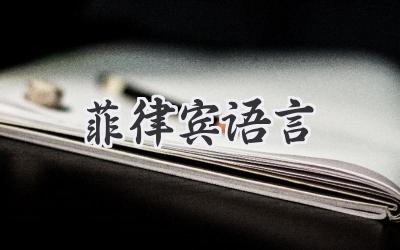 菲律宾语言